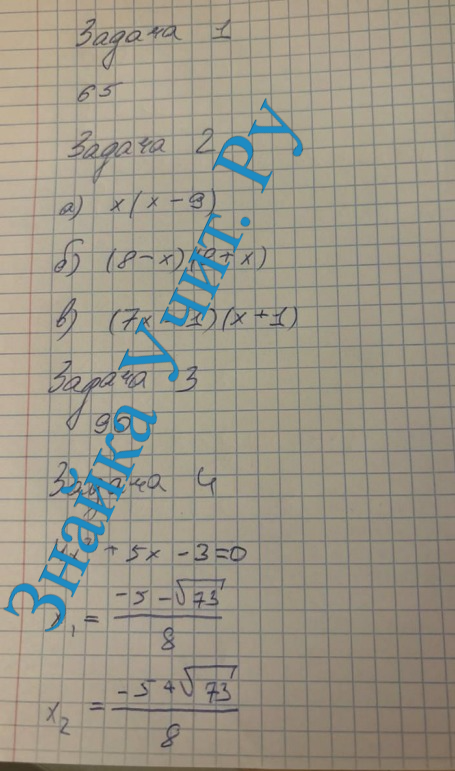 Задача 1
65
Задача 2
а) x(x-9)
б) (8-x)(9+x)
в) (7x-1)(x+1)
Задача 3
90
Задача 4
+5x-3=0
x₁ = (-5-√73)/8
x₂ = (-5+√73)/8
Знайка Учит. Ру